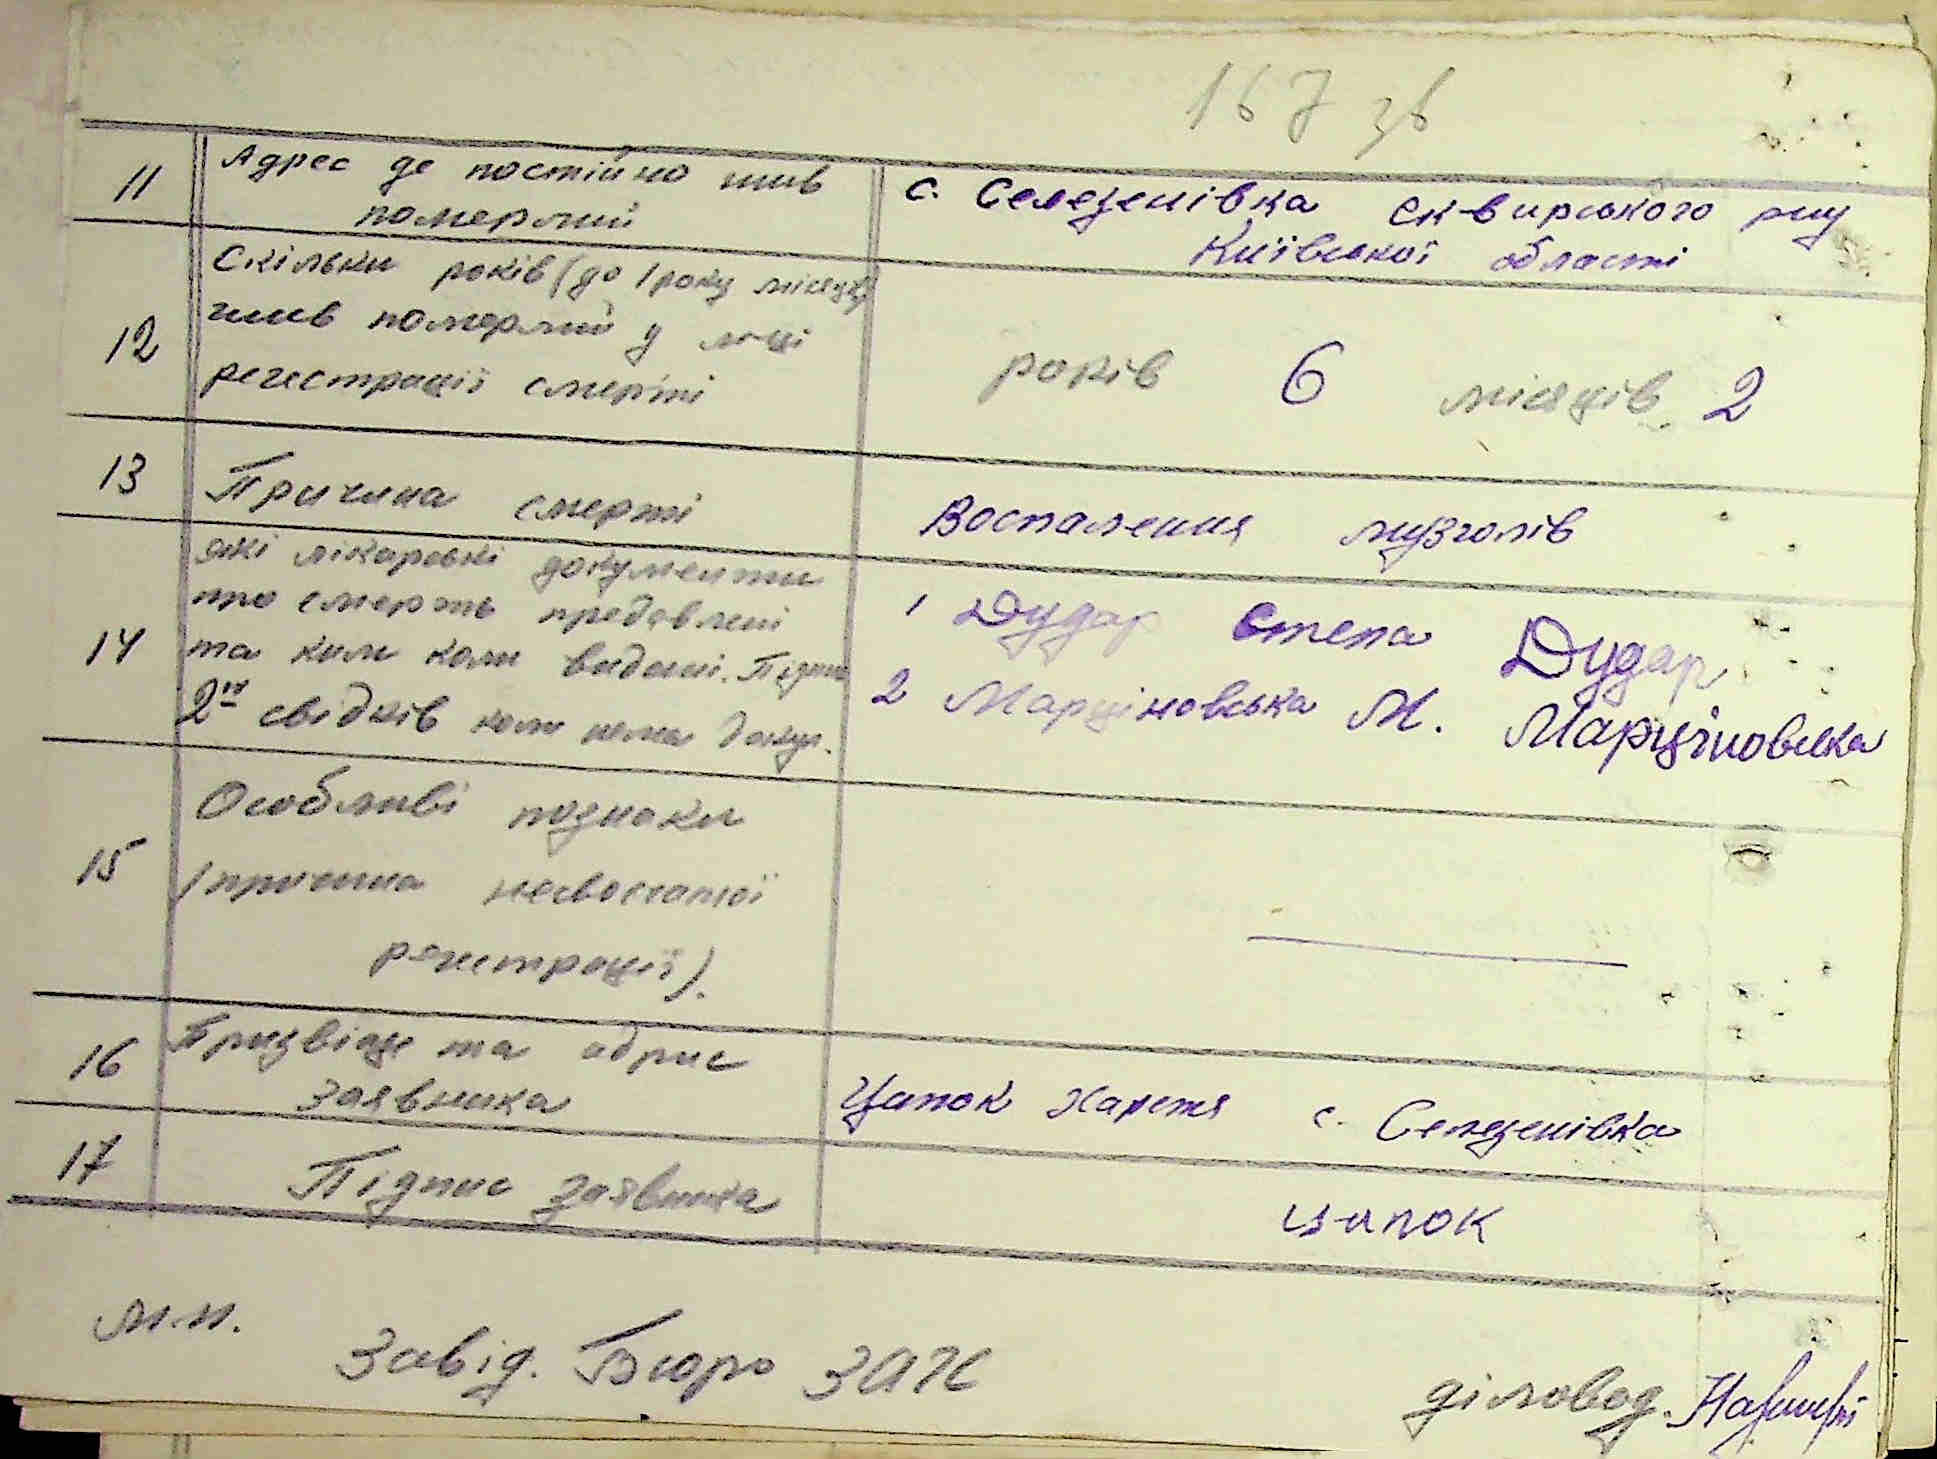 167 зв
11 Адрес де постійно жив
померший
с. Селезенівка Сквирського р-ну
Київської області
12 Скільки років (до 1 року місяців)
жив померший у м-ці
регестрації смерті
років 6 місяців 2
13 Причина смерті
Воспаления музголів
14 які лікарські документи
про смерть предявлені
та ким коли видані. Підпис
2х свідків коли нема докум.
1 Дудар Степа Дудар
2 Марціновська М. Марціновска
15 Особливі познаки
(причина несвоєчатої
регестрації).
16 Призвіще та адрис
заявника
Цапок Харетя с. Селезенівка
17 Підпис заявника
цапок
М.П.
Завід. Бюро ЗАГС
діловод.